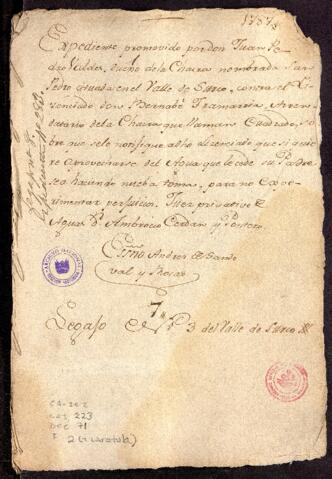 1787
Expediente promovido por don Juan Pe
dro Valdez, dueño de la Chacra nombrada San
Pedro situada en el Valle de Surco, contra el Li
cenciado Don Bernabé Tramarria, Arren
datario de la Chacra que llaman Cuadrado, so
bre que se le notifique a dho Licenciado que si quie
re aprovecharse del Agua que le cede su Padre
sea haciendo nueba toma, para no expe
rimentar perjuicio. Juez privativo de
Aguas Dr. Ambrocio Cerdan y Pontero
Essno Andres de Sando
val y
7
Legajo N 3 del Valle de Surco
CA-JC2
223
DOC 71
F 2 (+1 caratula)